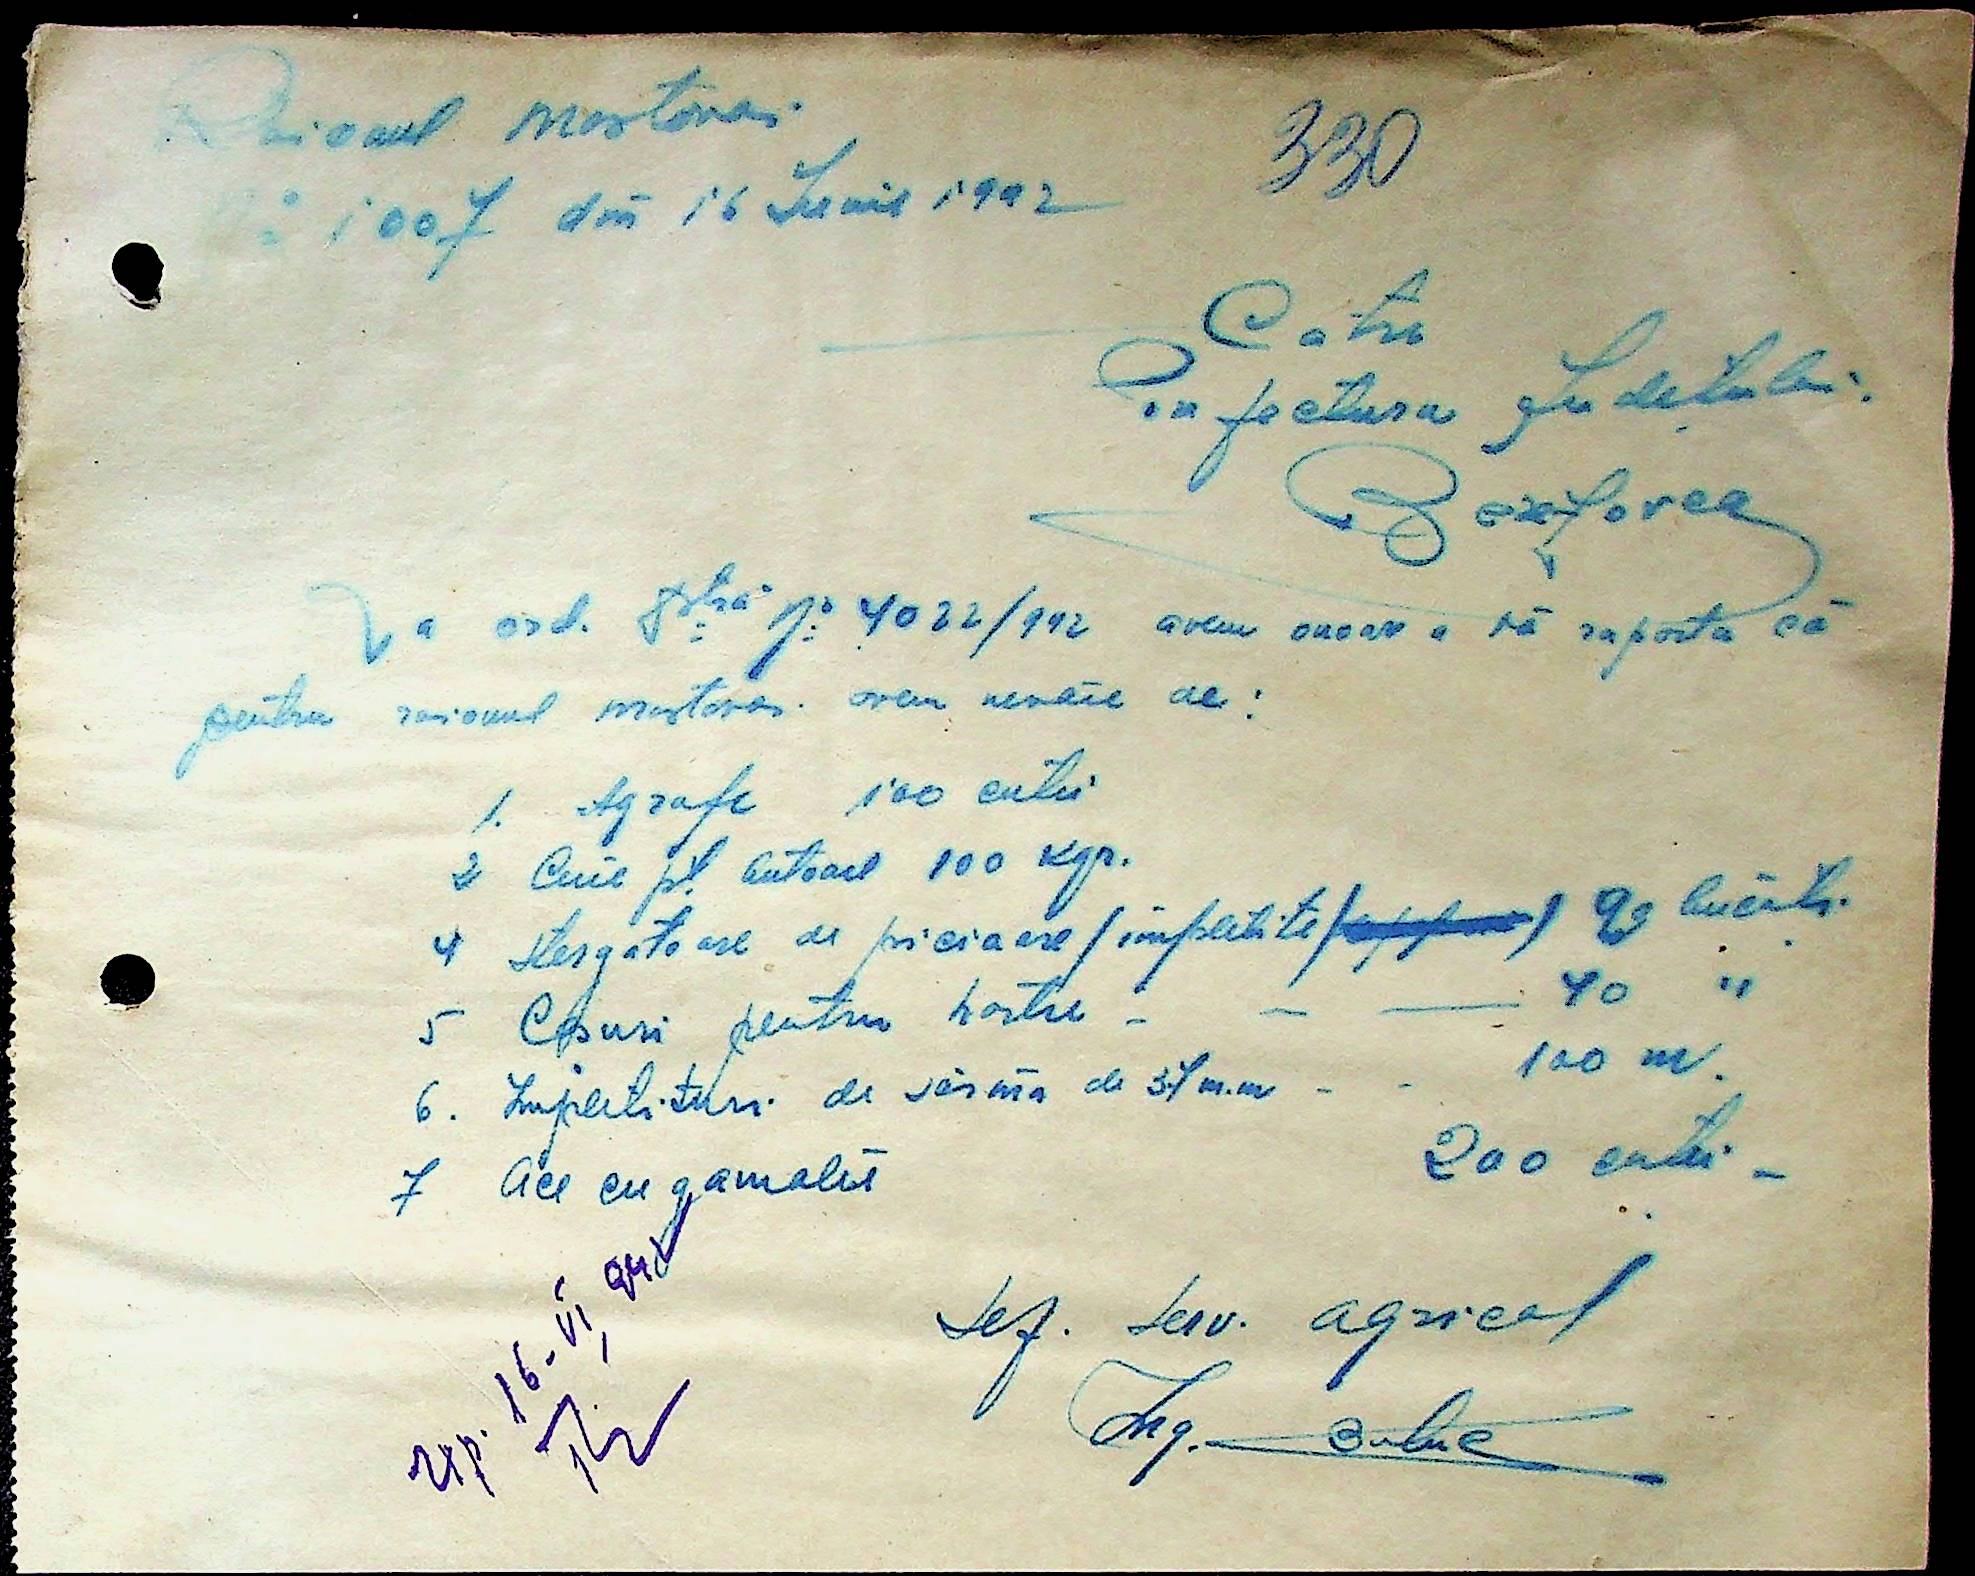 Raionul Mostovoi
No 1007 din 16 Iunie 1942
330
Catre
Prefectura Judetului
Berezovca
La ord. Dtră No 4022/942 avem onoare a vă raporta că
pentru raionul Mostovoi avem nevoie de:
1. Agrafe 100 cutii
2 Cuie pt. butoaie 100 kgr.
4 Stergatoare de picioare /impletite/ bucăti.
5 Cosuri pentru hartie - - — 40 "
6. Impletituri de sârmă de m.m - - 100 m.
7 Ace cu gamalie 200 cutii -
Sef. Serv. Agricol
Ing.
16-VI, 942